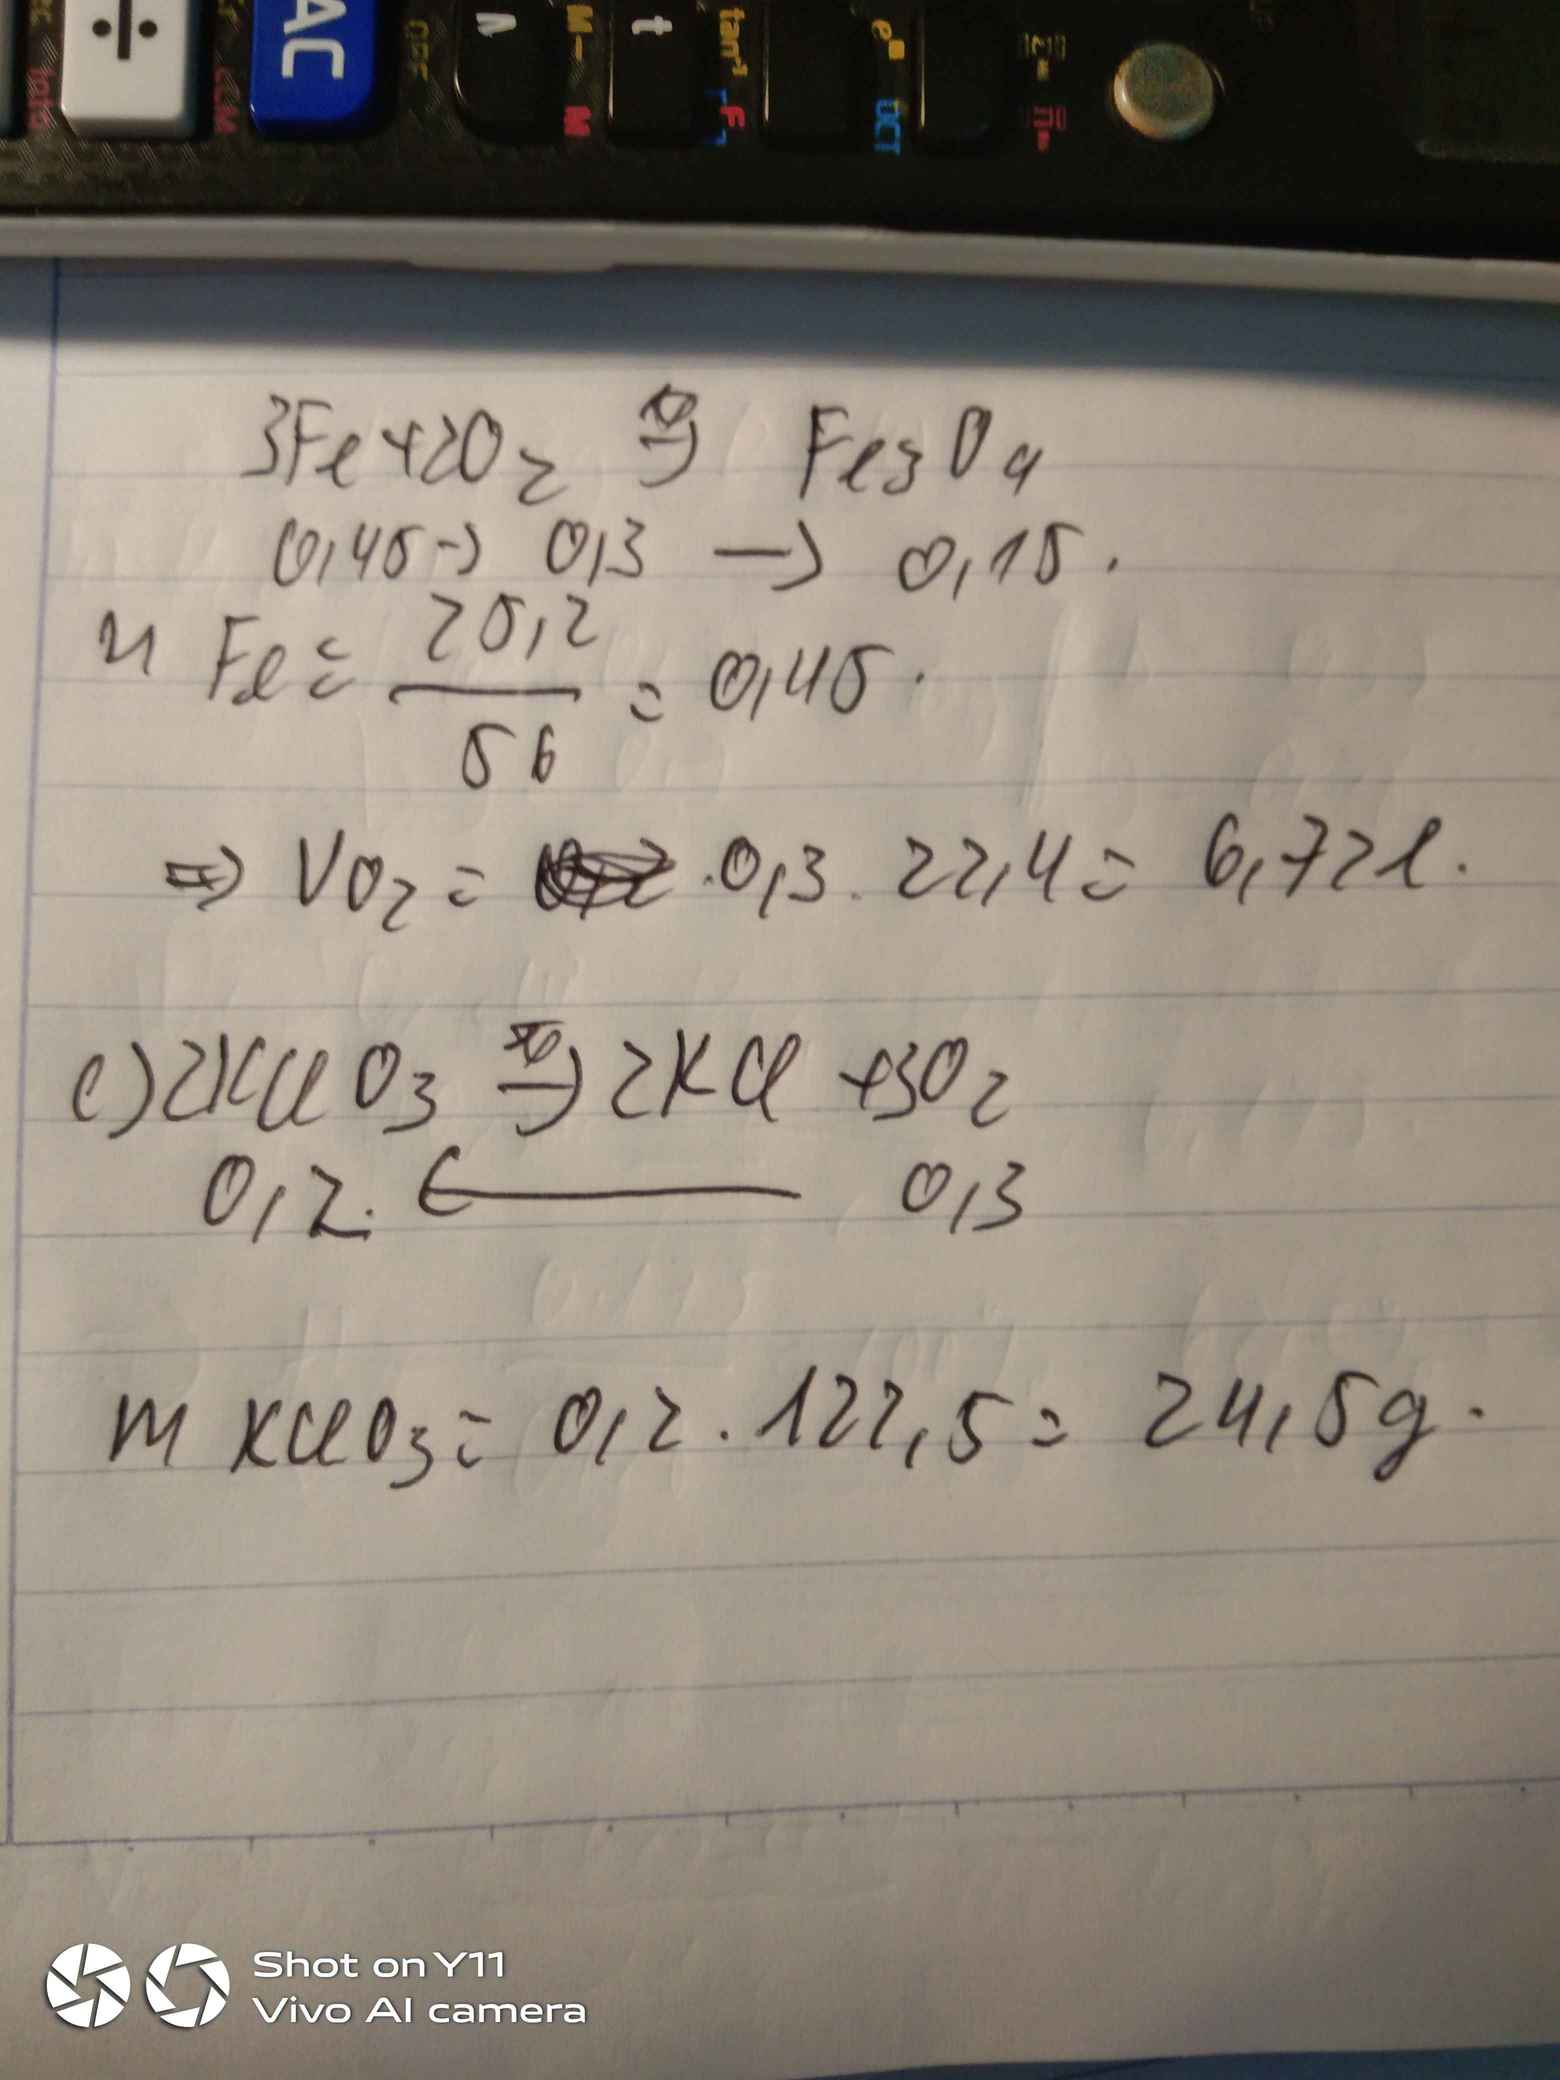 ÷
AC
OFF
M-
M
t
tan⁻¹
F
e■
UCT
3Fe+2O₂ →(t⁰) Fe₃O₄
0,45→ 0,3 → 0,15.
n Fe = 25,2/56 = 0,45.
=> VO₂ = 0,3.22,4= 6,72l.
c)2KClO₃ →(t⁰) 2KCl +3O₂
0,2. ← 0,3
m KClO₃= 0,2.122,5= 24,5g.
Shot on Y11
Vivo AI camera